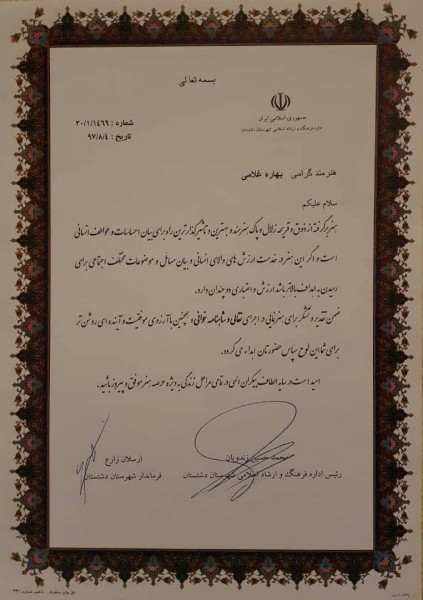 بسمه تعالی
جمهوری اسلامی ایران
اداره فرهنگ و ارشاد اسلامی شهرستان دشتستان
شماره : ۲۰/۱/۱۴۶۹
تاریخ : ۹۷/۸/۴
هنرمند گرامی بهاره غلامی
سلام علیکم
هنر برگرفته از ذوق و قریحه زلال و پاک هنرمند و بهترین و تاثیرگذارترین راه برای بیان احساسات و عواطف انسانی
است و اگر این هنر در خدمت ارزش های والای انسانی و بیان مسائل و موضوعات مختلف اجتماعی برای
رسیدن به اهداف بالاتر باشد ارزش و اعتباری دو چندان دارد.
ضمن تقدیر و تشکر برای هنرنمایی در اجرای نقالی و شاهنامه خوانی و همچنین با آرزوی موفقیت و آینده ای روشن تر
برای شما این لوح سپاس حضورتان اهداء می گردد.
امید است در سایه الطاف بیکران الهی در تمامی مراحل زندگی به ویژه عرصه هنر موفق و پیروز باشید.
محمد حسین زندویان
رئیس اداره فرهنگ و ارشاد اسلامی شهرستان دشتستان
ارسلان زارع
فرماندار شهرستان دشتستان